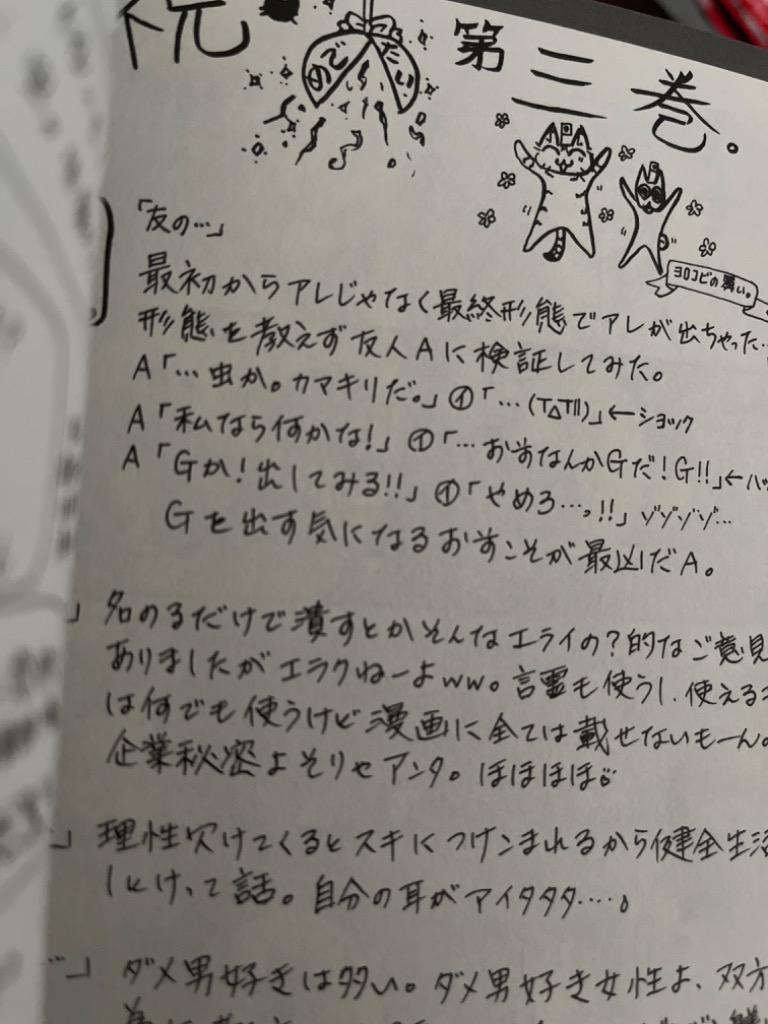 祝 第三巻。
めでたい
ヨロコビの舞い。
「友の…」
最初からアレじゃなく最終形態でアレが出ちゃった…
形態を教えず友人Aに検証してみた。
A「…虫か。カマキリだ。」④「…(TΔT||)」←ショック
A「私なら何かな!」④「…おまなんかGだ!G!!」←
A「Gか!出してみる!!」④「やめろ…っ!!」ゾゾゾゾ…
Gを出す気になるおまこそが最凶だA。
」名のるだけで潰すとかそんなエライの?的なご意見
ありましたがエラクねーよww。言霊も使うし、使える
は何でも使うけど漫画に全ては載せないもーん。
企業秘密よそりゃアンタ。ほほほほ
」理性欠けてくるとスキにつけこまれるから健全生活
しとけって話。自分の耳がアイタタタ…。
」ダメ男好きは多い。ダメ男好き女性よ、双方